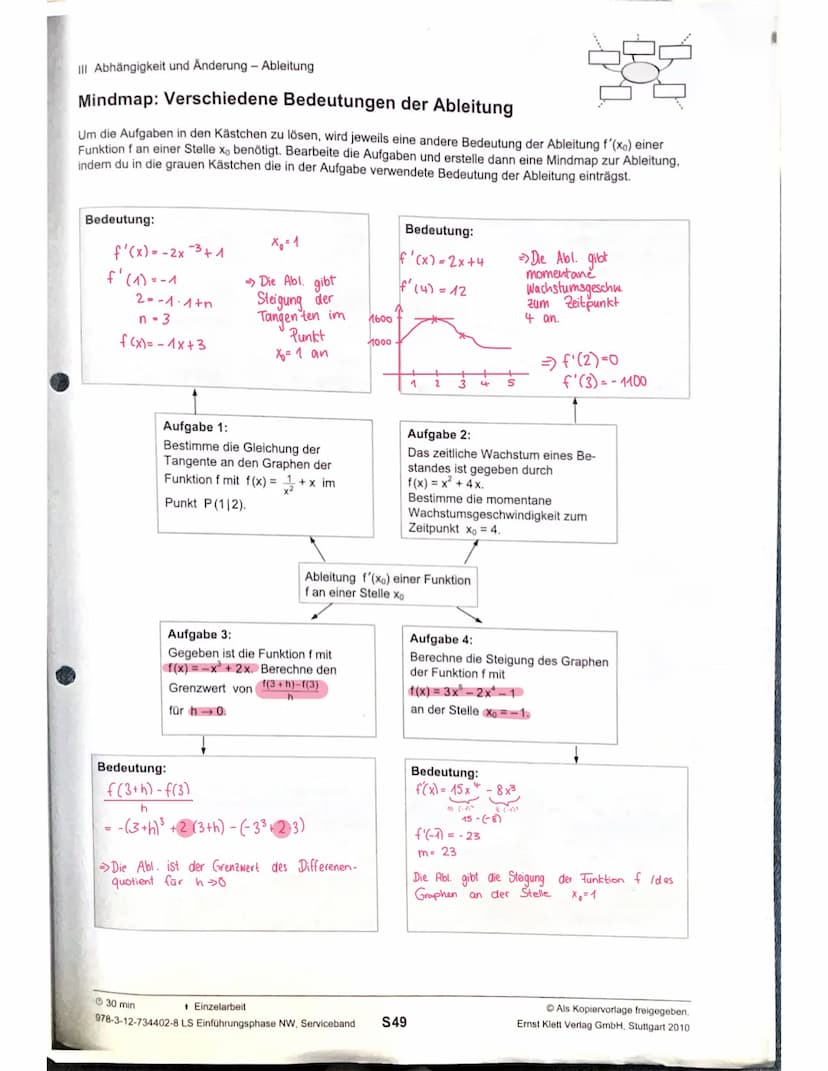 III Abhängigkeit und Änderung – Ableitung
Mindmap: Verschiedene Bedeutungen der Ableitung
Um die Aufgaben in den Kästchen zu lösen, wird jeweils eine andere Bedeutung der Ableitung f'(x₀) einer
Funktion f an einer Stelle x₀ benötigt. Bearbeite die Aufgaben und erstelle dann eine Mindmap zur Ableitung,
indem du in die grauen Kästchen die in der Aufgabe verwendete Bedeutung der Ableitung einträgst.
Bedeutung:
f'(x) = -2x⁻³ + 1
x₀ = 1
f'(1) = -1
2 = -1 · 1 + n
n = 3
f(x) = -1x + 3
⇒ Die Abl. gibt
Steigung der
Tangenten im
Punkt
x₀ = 1 an
Bedeutung:
f'(x) = 2x + 4
f'(4) = 12
⇒ Die Abl. gibt
momentane
Wachstumsgeschw
zum Zeitpunkt
4 an.
1600
1000
1 2 3 4 5
⇒ f'(2) = 0
f'(3) = -1100
Aufgabe 1:
Bestimme die Gleichung der
Tangente an den Graphen der
Funktion f mit f(x) = 1/x² + x im
Punkt P(1|2).
Aufgabe 2:
Das zeitliche Wachstum eines Be-
standes ist gegeben durch
f(x) = x² + 4x.
Bestimme die momentane
Wachstumsgeschwindigkeit zum
Zeitpunkt x₀ = 4.
Ableitung f'(x₀) einer Funktion
f an einer Stelle x₀
Aufgabe 3:
Gegeben ist die Funktion f mit
f(x) = –x³ + 2x. Berechne den
Grenzwert von f(3 + h) – f(3)/h
für h → 0.
Aufgabe 4:
Berechne die Steigung des Graphen
der Funktion f mit
f(x) = 3x⁵ – 2x⁴ – 1
an der Stelle x₀ = –1.
Bedeutung:
f(3+h) - f(3)
h
= -(3+h)³ + 2(3+h) - (-3³ + 2·3)
⇒ Die Abl. ist der Grenzwert des Differenen-
quotient für h → 0
Bedeutung:
f'(x) = 15x⁴ - 8x³
15 - (-8)
f'(-1) = -23
m = 23
Die Abl. gibt die Steigung der Funktion f / des
Graphen an der Stelle x₀ = 1
30 min
Einzelarbeit
978-3-12-734402-8 LS Einführungsphase NW, Serviceband
S49
© Als Kopiervorlage freigegeben.
Ernst Klett Verlag GmbH, Stuttgart 2010